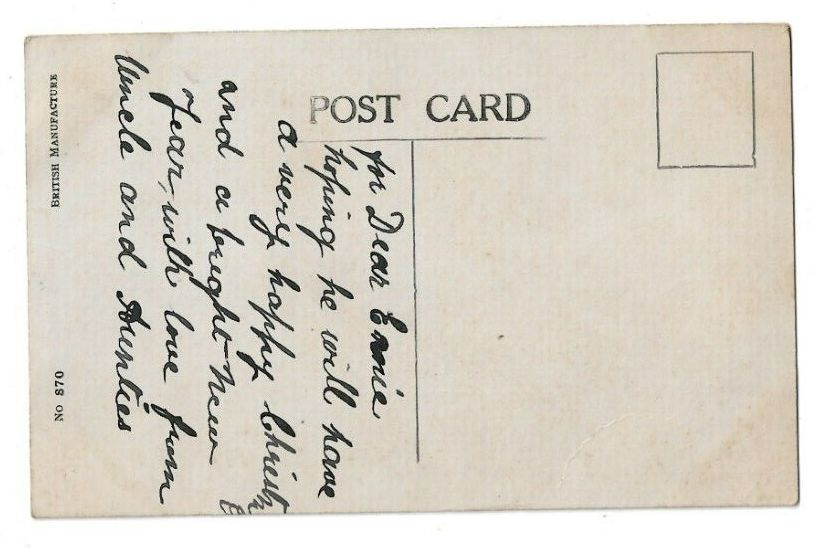 POST CARD
for Dear Ernie
hoping he will have
a very happy Christ
and a bright New
Year, with love from
Uncle and Aunties
BRITISH MANUFACTURE
No 870